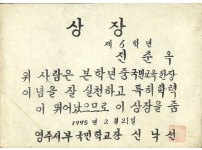 상장
제 6 학년
전춘옥
위 사람은 본 학년 중 국민교육헌장
이념을 잘 실천하고 특히 학력
이 뛰어났으므로 이 상장을 줌
1975년 2월 21일
영주서부국민학교장 신낙선